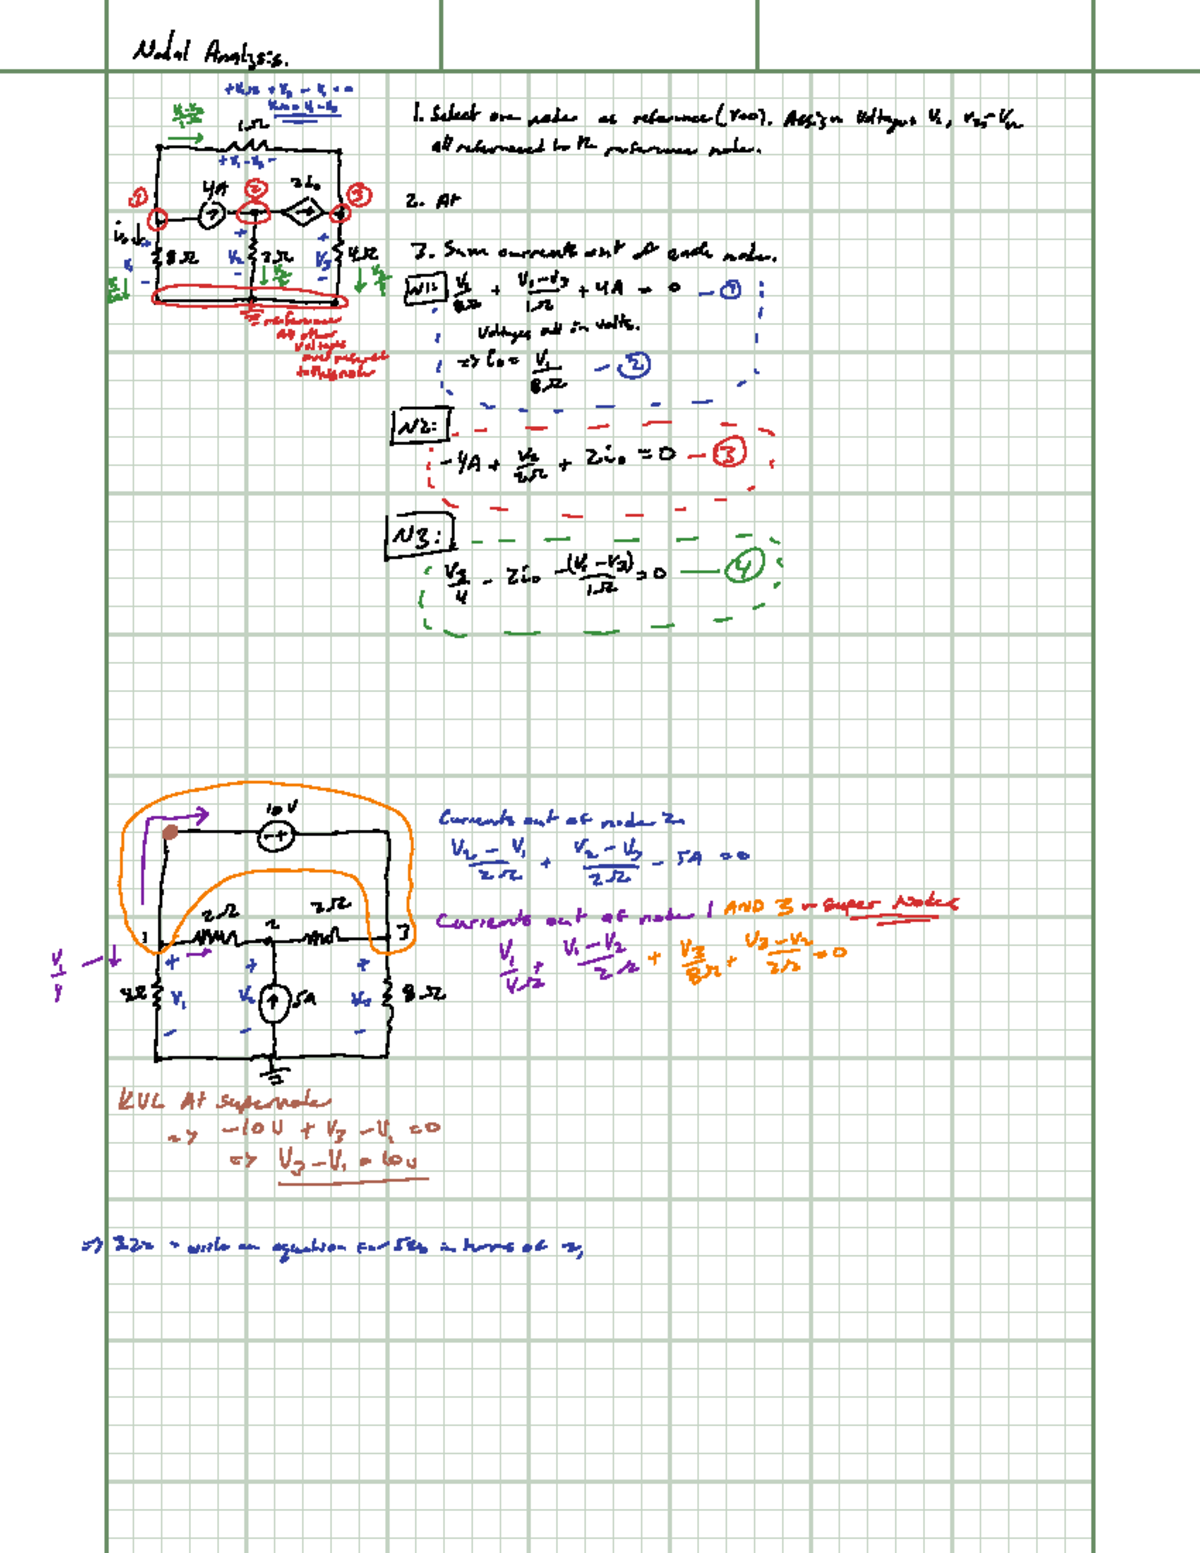 Nodal Analysis.
1Ω
+V₁-V₃-
4A
2
2i₀
3
1
i₀↓
8Ω
V₂
2Ω
V₃
4Ω
reference
All other
voltages
are referenced
to this node
1. Select one node as reference (V=0). Assign Voltages V₁, V₂, -Vₙ
all referenced to the reference node.
2. At
3. Sum currents out of each node.
N1: V₁/8Ω + (V₁-V₃)/1Ω + 4A = 0 - 1
Voltages all in volts.
=> i₀ = V₁/8Ω - 2
N2:
-4A + V₂/2Ω + 2i₀ = 0 - 3
N3:
V₃/4 - 2i₀ - (V₁-V₃)/1Ω = 0 - 4
10V
-+
2Ω
2
2Ω
1
3
+
+
+
V₁/4
V₁
5A
8Ω
Currents out of node 2
(V₂-V₁)/2Ω + (V₂-V₃)/2Ω - 5A = 0
Currents out of node 1 AND 3 - Super Nodes
V₁/4Ω + (V₁-V₂)/2Ω + V₃/8Ω + (V₃-V₂)/2Ω = 0
KVL At supernode
=> -10V + V₃ - V₁ = 0
=> V₃ - V₁ = 10V
write an equation for in terms of